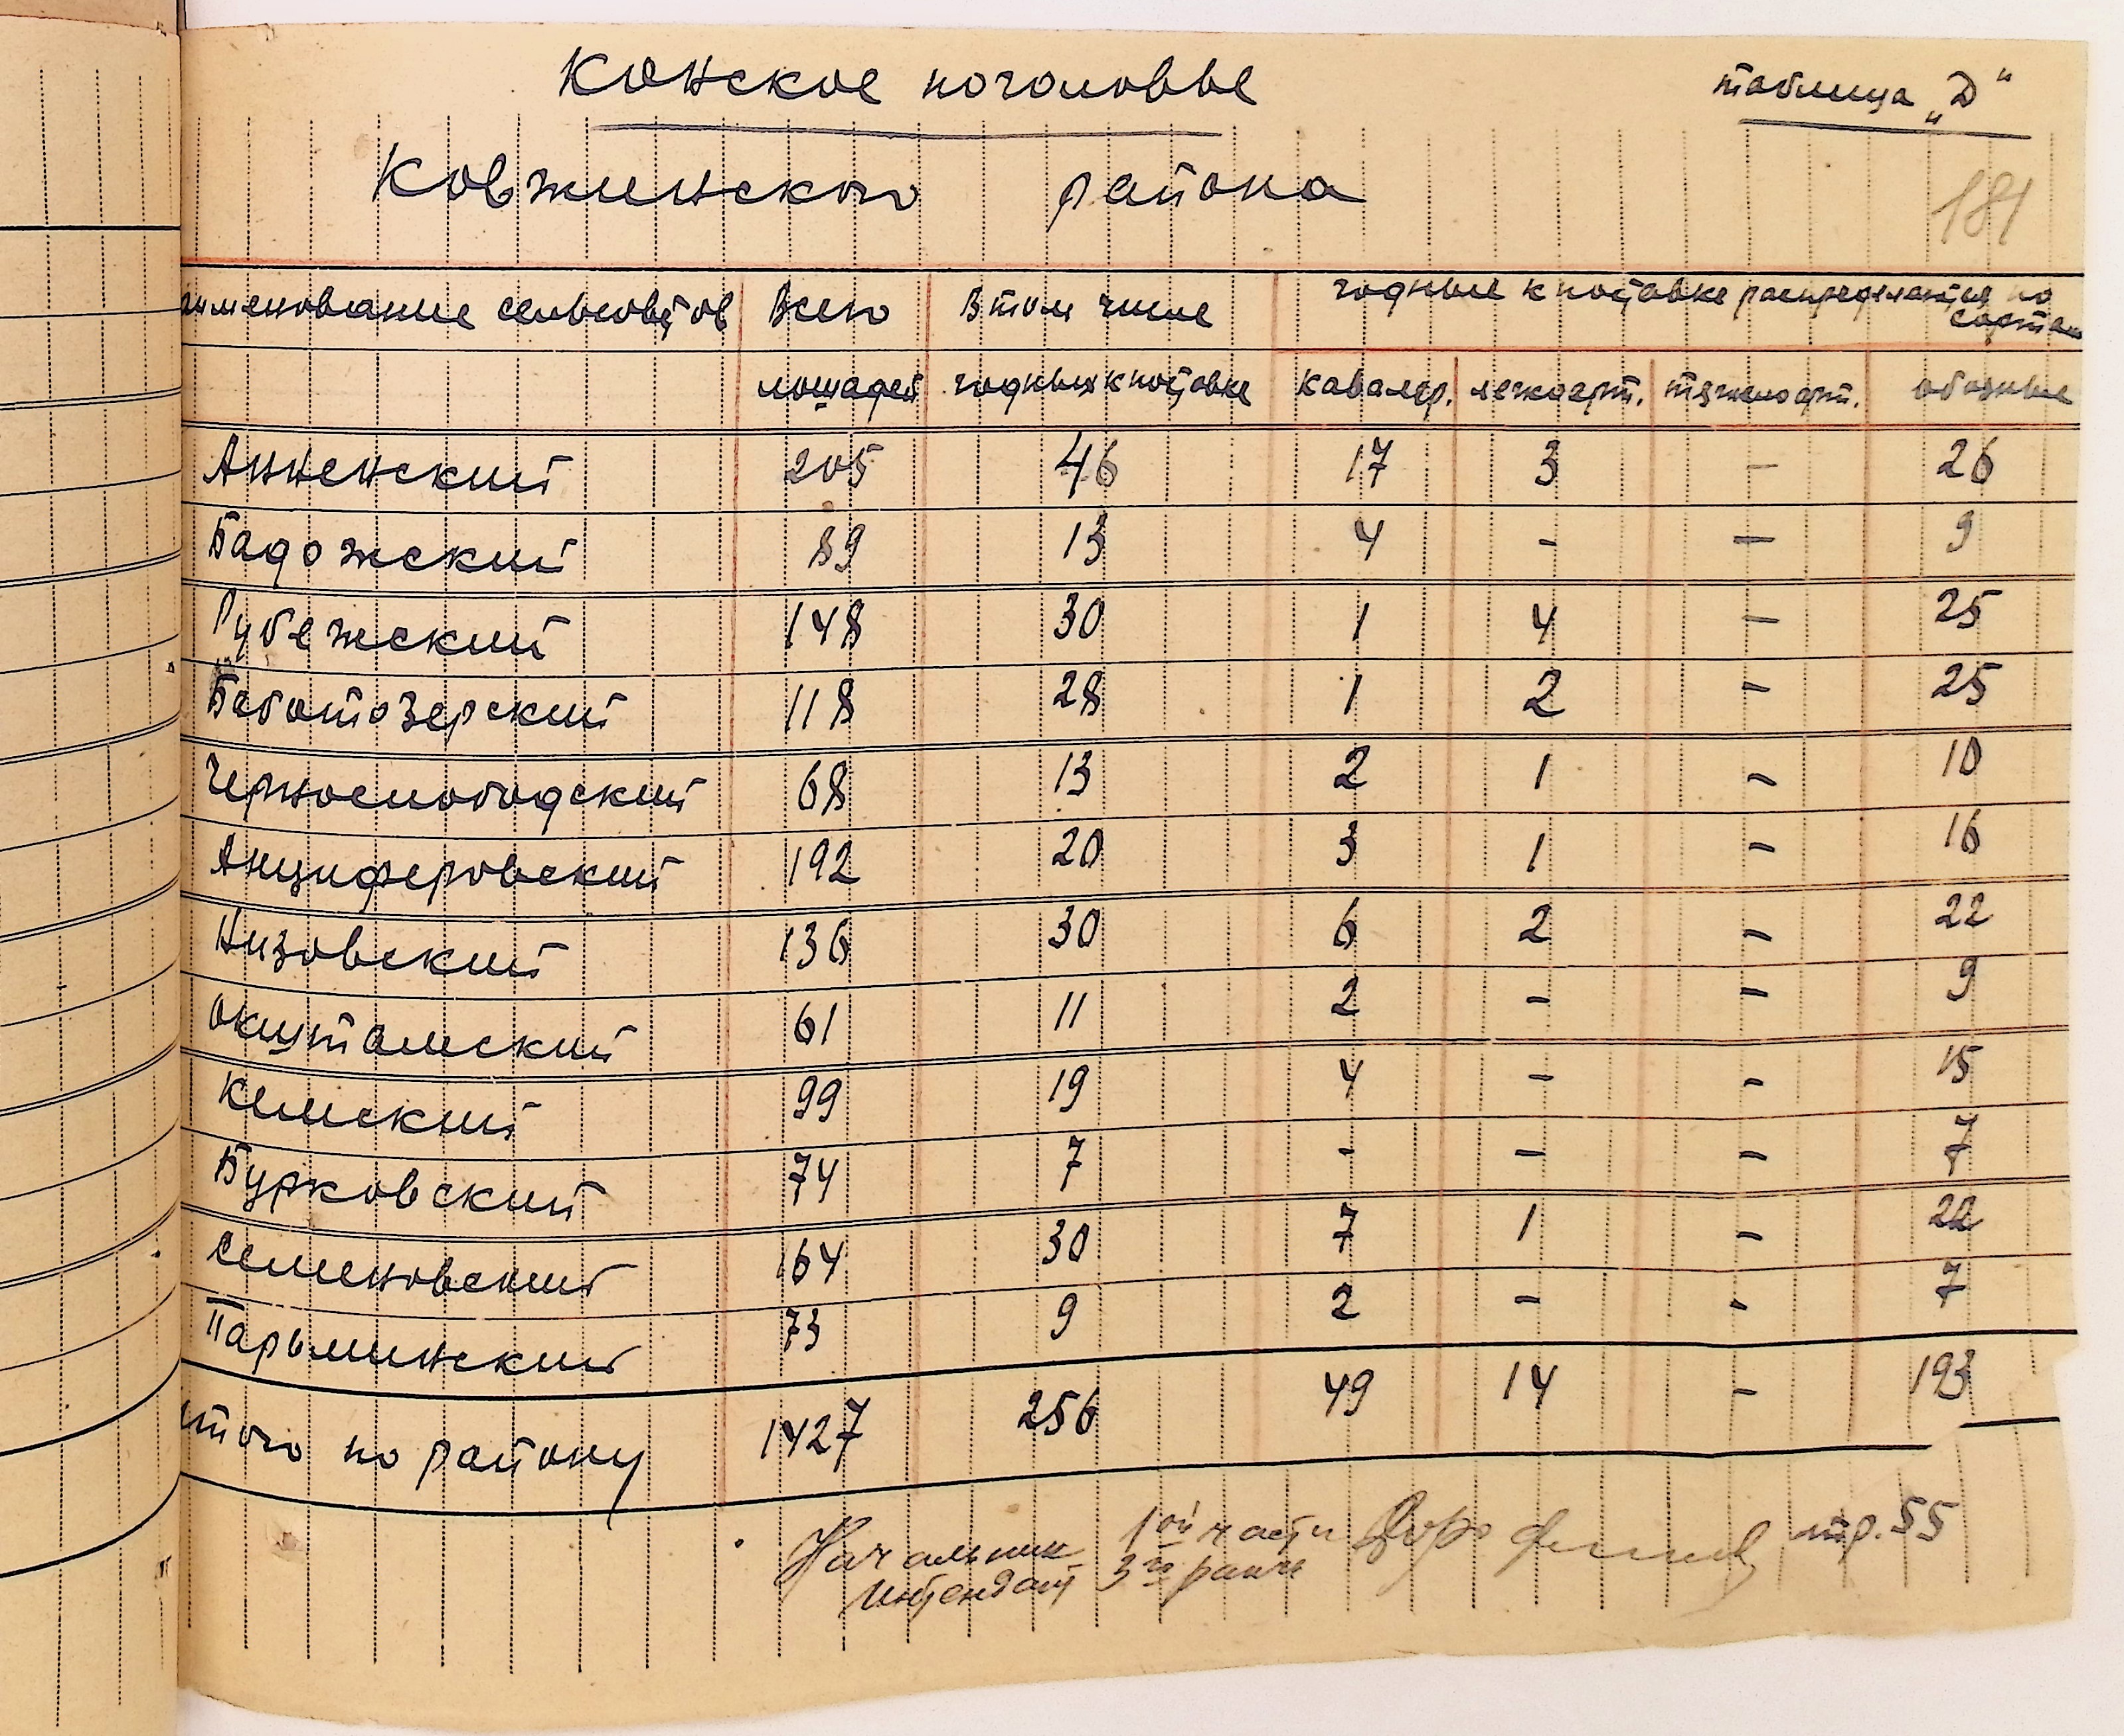 Конское поголовье
таблица „Д“
Ковжинского района
181
аименование сельсоветов Всего В том числе годные к поставке распределяются по сортам
лошадей годных к поставке кавалер. легкоарт. тяжелоарт. обозные
Анненский 205 46 17 3 - 26
Бадожский 89 13 4 - - 9
Рубежский 148 30 1 4 - 25
Баботозерский 118 28 1 2 - 25
Чернослободский 68 13 2 1 - 10
Анциферовский 192 20 3 1 - 16
Низовский 136 30 6 2 - 22
Окштамский 61 11 2 - - 9
Кемский 99 19 4 - - 15
Бурковский 74 7 - - - 7
Семеновский 164 30 7 1 - 22
Парьминский 73 9 2 - - 7
итого по району 1427 256 49 14 - 193
Начальник 1ой части стр. 55
Интендант 3го ранга